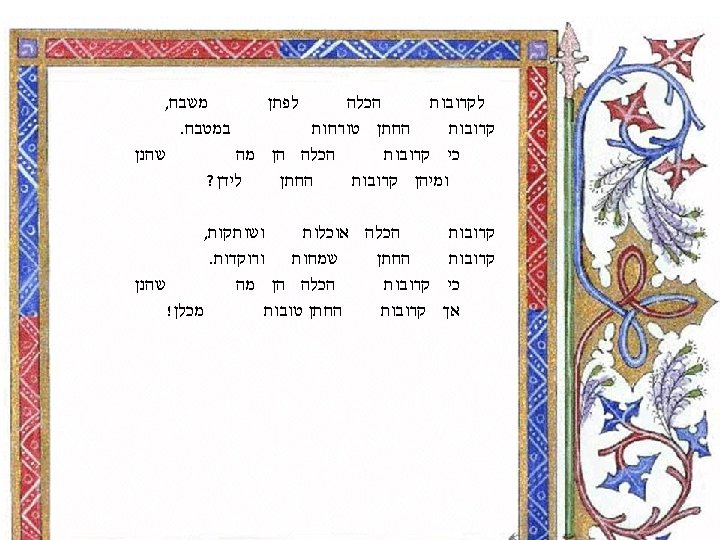 לקרובות הכלה לפתן משבח,
קרובות החתן טורחות במטבח.
כי קרובות הכלה הן מה שהנן
ומיהן קרובות החתן לידן?
קרובות הכלה אוכלות ושותקות,
קרובות החתן שמחות ורוקדות.
כי קרובות הכלה הן מה שהנן
אך קרובות החתן טובות מכלן!